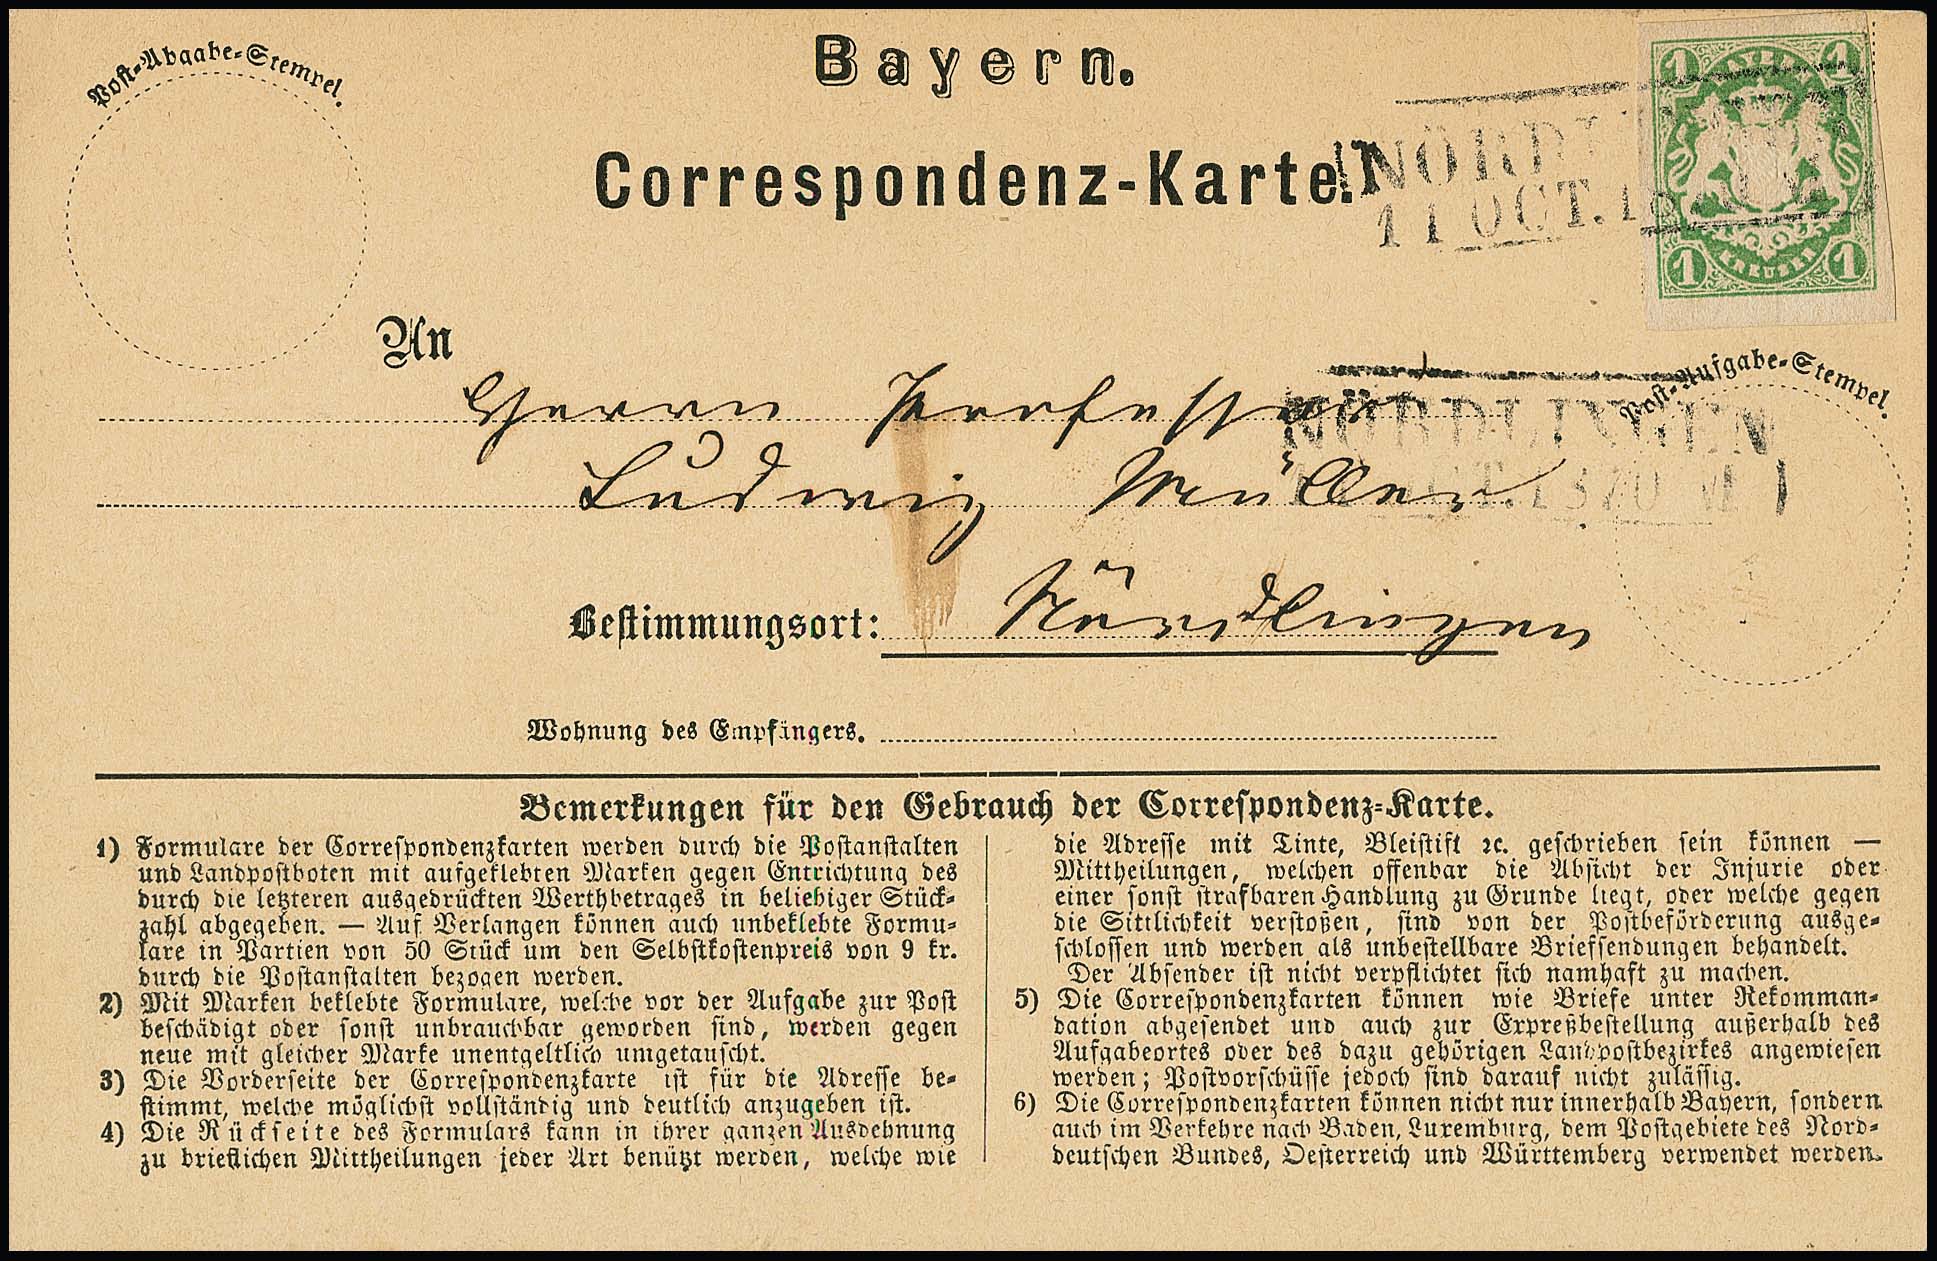 Post-Abgabe-Stempel.
Bayern.
Correspondenz-Karte.
1 BAYERN 1
NÖRDL
11 OCT. 18
1 KREUZER 1
An
Post-Aufgabe-Stempel.
Herrn Professor
NÖRDLINGEN
Ludwig Müller
CT. 1870 VI
Bestimmungsort: Nördlingen
Wohnung des Empfängers.
Bemerkungen für den Gebrauch der Correspondenz-Karte.
1) Formulare der Correspondenzkarten werden durch die Postanstalten
und Landpostboten mit aufgeklebten Marken gegen Entrichtung des
durch die letzteren ausgedrückten Werthbetrages in beliebiger Stück-
zahl abgegeben. — Auf Verlangen können auch unbeklebte Formu-
lare in Partien von 50 Stück um den Selbstkostenpreis von 9 kr.
durch die Postanstalten bezogen werden.
2) Mit Marken beklebte Formulare, welche vor der Aufgabe zur Post
beschädigt oder sonst unbrauchbar geworden sind, werden gegen
neue mit gleicher Marke unentgeltlich umgetauscht.
3) Die Vorderseite der Correspondenzkarte ist für die Adresse be-
stimmt, welche möglichst vollständig und deutlich anzugeben ist.
4) Die Rückseite des Formulars kann in ihrer ganzen Ausdehnung
zu brieflichen Mittheilungen jeder Art benützt werden, welche wie
die Adresse mit Tinte, Bleistift ꝛc. geschrieben sein können —
Mittheilungen, welchen offenbar die Absicht der Injurie oder
einer sonst strafbaren Handlung zu Grunde liegt, oder welche gegen
die Sittlichkeit verstoßen, sind von der Postbeförderung ausge-
schlossen und werden als unbestellbare Briefsendungen behandelt.
Der Absender ist nicht verpflichtet sich namhaft zu machen.
5) Die Correspondenzkarten können wie Briefe unter Rekomman-
dation abgesendet und auch zur Expreßbestellung außerhalb des
Aufgabeortes oder des dazu gehörigen Landpostbezirkes angewiesen
werden; Postvorschüsse jedoch sind darauf nicht zulässig.
6) Die Correspondenzkarten können nicht nur innerhalb Bayern, sondern
auch im Verkehre nach Baden, Luxemburg, dem Postgebiete des Nord-
deutschen Bundes, Oesterreich und Württemberg verwendet werden.